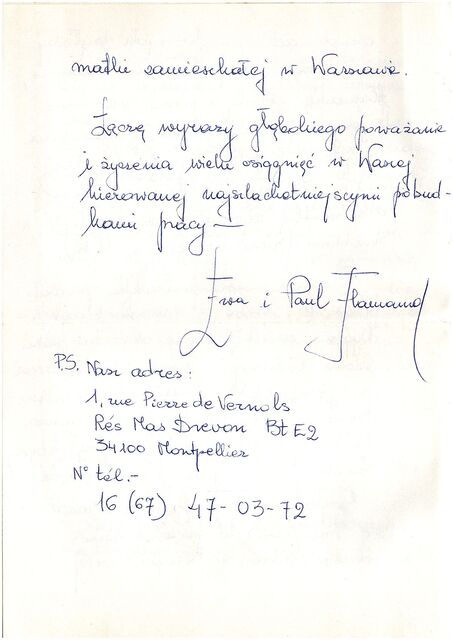 matki zamieszkałej w Warszawie.
Łączę wyrazy głębokiego poważania
i życzenia wielu osiągnięć w Waszej
kierowanej najszlachetniejszymi pobud-
kami pracy —
Ewa i Paul Flamand
P.S. Nasz adres:
1, rue Pierre de Vernols
Rés Mas Drevon Bt E2
34100 Montpellier
N° tél.-
16 (67) 47-03-72